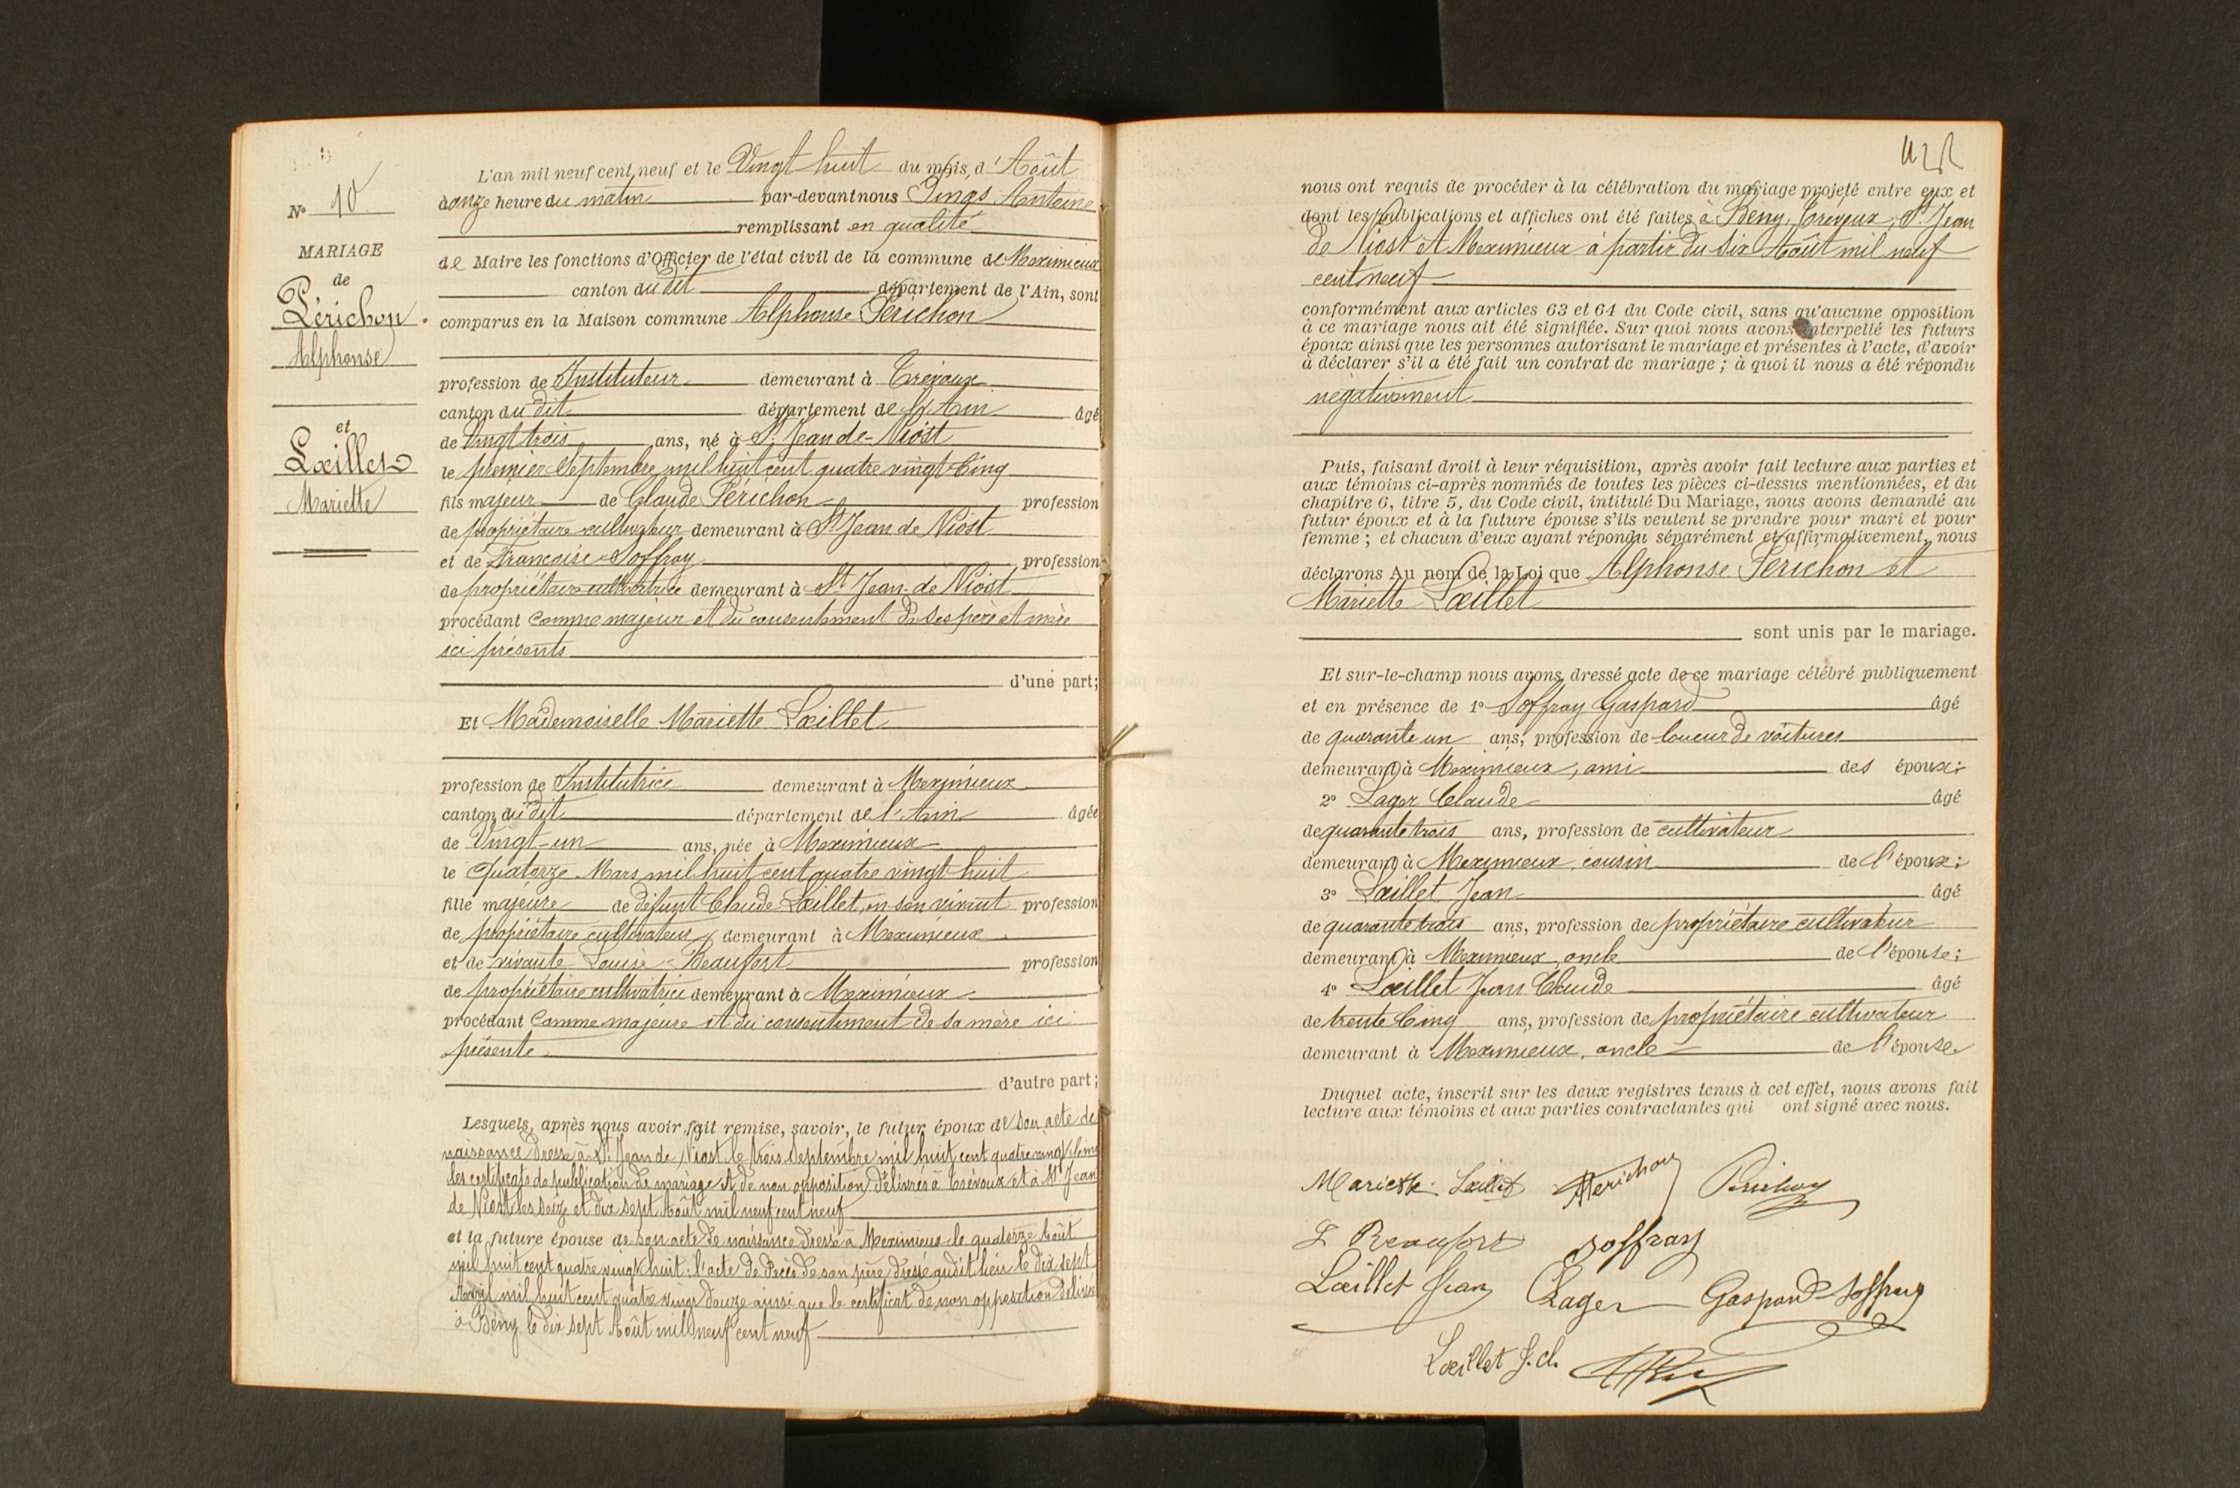 N° 10
MARIAGE
de
Périchon
Alphonse
et
Lœillet
Mariette
L'an mil neuf cent neuf et le Vingt huit du mois, d'Août
à onze heure du matin par-devant nous Pingo Antoine
remplissant en qualité
de Maire les fonctions d'Officier de l'état civil de la commune de Meximieux
canton du dit département de l'Ain, sont
comparus en la Maison commune Alphonse Périchon
profession de Instituteur demeurant à Trévoux
canton du dit département de l'Ain âgé
de Vingt trois ans, né à St Jean de-Niost
le premier Septembre mil huit cent quatre vingt Cinq
fils majeur de Claude Périchon profession
de propriétaire cultivateur demeurant à St Jean de Niost
et de Françoise Soffray profession
de propriétaire cultivatrice demeurant à St Jean-de Niost
procédant comme majeur et du consentement de ses père et mère
ici présents
d'une part;
Et Mademoiselle Mariette Lœillet
profession de Institutrice demeurant à Meximieux
canton du dit département de l'Ain âgée
de Vingt-un ans, née à Meximieux
le Quatorze Mars mil huit cent quatre vingt huit
fille majeure de défunt Claude Lœillet, en son vivant profession
de propriétaire cultivateur demeurant à Meximieux
et de vivante Louise Beaufort profession
de propriétaire cultivatrice demeurant à Meximieux
procédant Comme majeure et du consentement de sa mère ici
présente
d'autre part;
Lesquels, après nous avoir fait remise, savoir, le futur époux de son acte de
naissance dressé à St Jean de Niost le trois Septembre mil huit cent quatre vingt cinq
les certificats de publication de mariage et de non opposition délivrés à Trévoux et à St Jean
de Niost les seize et dix sept Août mil neuf cent neuf
et la future épouse de son acte de naissance dressé à Meximieux le quatorze Août
mil huit cent quatre vingt huit: l'acte de décès de son père, dressé audit lieu le dix sept
Avril mil huit cent quatre vingt douze ainsi que le certificat de non opposition délivré
à Bény le dix sept Août mil neuf cent neuf
nous ont requis de procéder à la célébration du mariage projeté entre eux et
dont les publications et affiches ont été faites à Beny, Trevoux, St Jean
de Niost et Meximieux à partir du six Août mil neuf
cent neuf
conformément aux articles 63 et 64 du Code civil, sans qu'aucune opposition
à ce mariage nous ait été signifiée. Sur quoi nous avons interpellé les futurs
époux ainsi que les personnes autorisant le mariage et présentes à l'acte, d'avoir
à déclarer s'il a été fait un contrat de mariage; à quoi il nous a été répondu
négativement
Puis, faisant droit à leur réquisition, après avoir fait lecture aux parties et
aux témoins ci-après nommés de toutes les pièces ci-dessus mentionnées, et du
chapitre 6, titre 5, du Code civil, intitulé Du Mariage, nous avons demandé au
futur époux et à la future épouse s'ils veulent se prendre pour mari et pour
femme; et chacun d'eux ayant répondu séparément et affirmativement, nous
déclarons Au nom de la Loi que Alphonse Périchon et
Mariette Lœillet
sont unis par le mariage.
Et sur-le-champ nous avons dressé acte de ce mariage célébré publiquement
et en présence de 1° Soffray Gaspard âgé
de quarante un ans, profession de loueur de voitures
demeurant à Meximieux, ami des époux;
2° Lager Claude âgé
de quarante trois ans, profession de cultivateur
demeurant à Meximieux, cousin de l'époux;
3° Lœillet Jean âgé
de quarante trois ans, profession de propriétaire cultivateur
demeurant à Meximieux, oncle de l'épouse;
4° Lœillet Jean Claude âgé
de trente Cinq ans, profession de propriétaire cultivateur
demeurant à Meximieux, oncle de l'épouse.
Duquel acte, inscrit sur les deux registres tenus à cet effet, nous avons fait
lecture aux témoins et aux parties contractantes qui ont signé avec nous.
Mariette Lœillet APerichon Périchon
L Beaufort Soffray
Lœillet Jean Lager Gaspard Soffray
Lœillet J. cl.